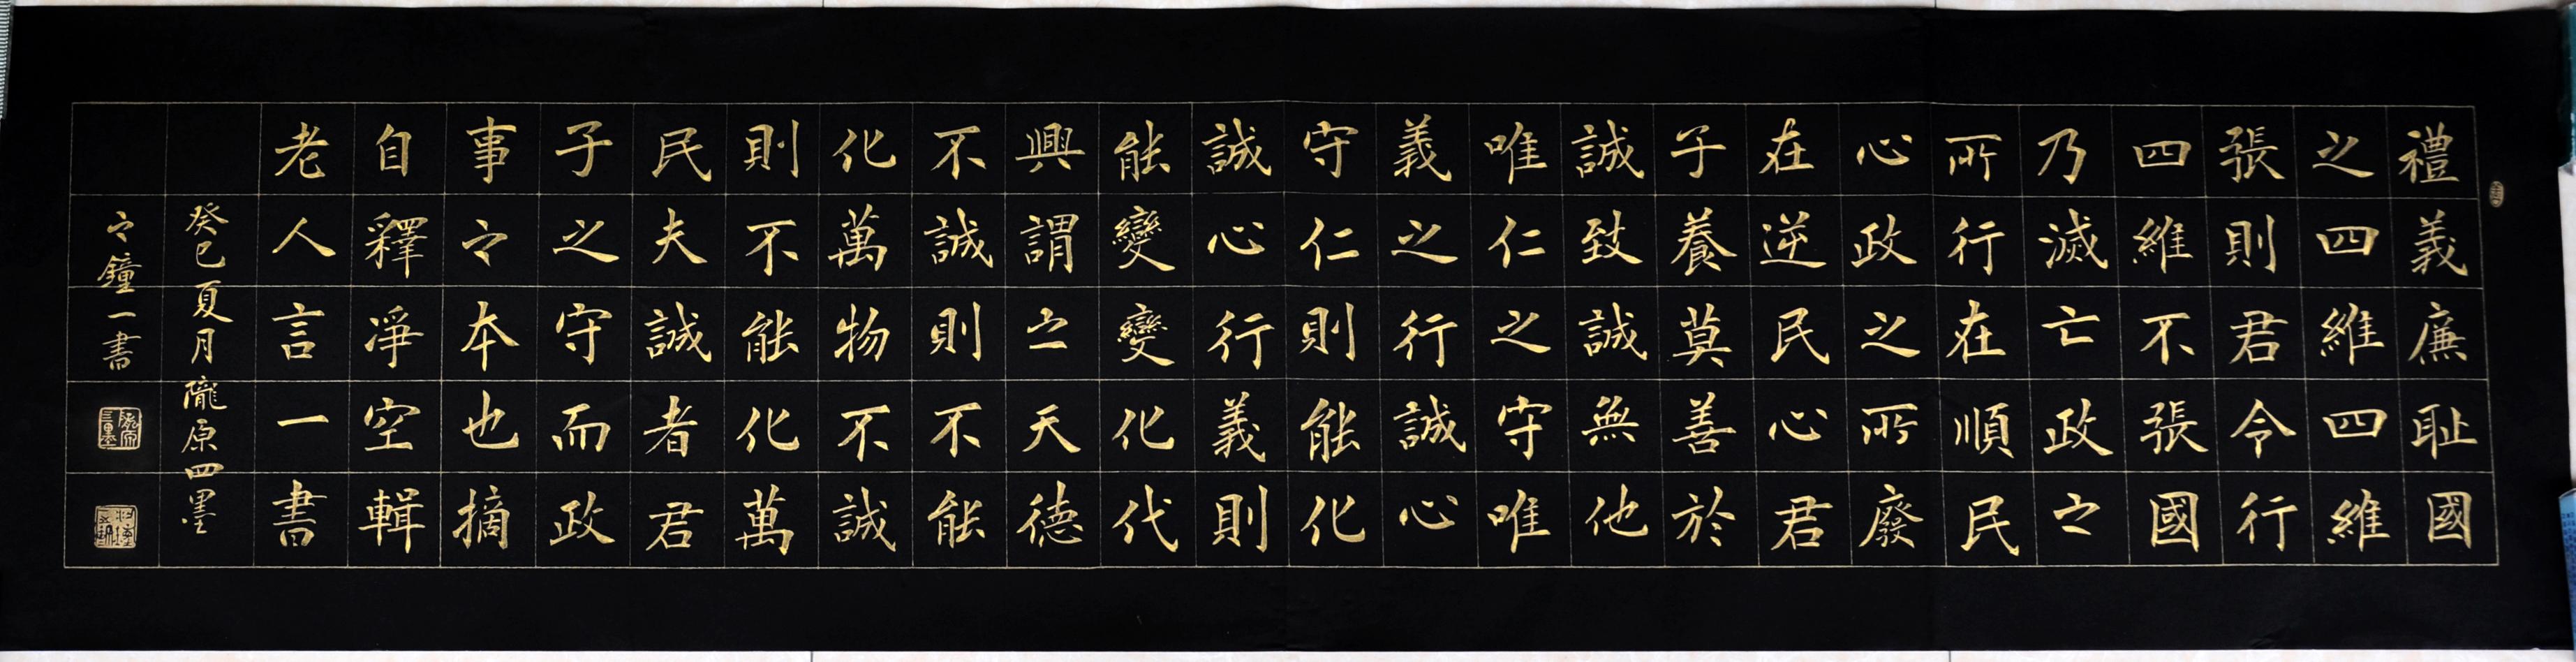 禮義廉耻國
之四維四維
張則君令行
四維不張國
乃滅亡政之
所行在順民
心政之所廢
在逆民心君
子養莫善於
誠致誠無他
唯仁之守唯
義之行誠心
守仁則能化
誠心行義則
能變變化代
興謂之天德
不誠則不能
化萬物不誠
則不能化萬
民夫誠者君
子之守而政
事之本也摘
自釋淨空輯
老人言一書
癸巳夏月隴原四墨
之鐘一書